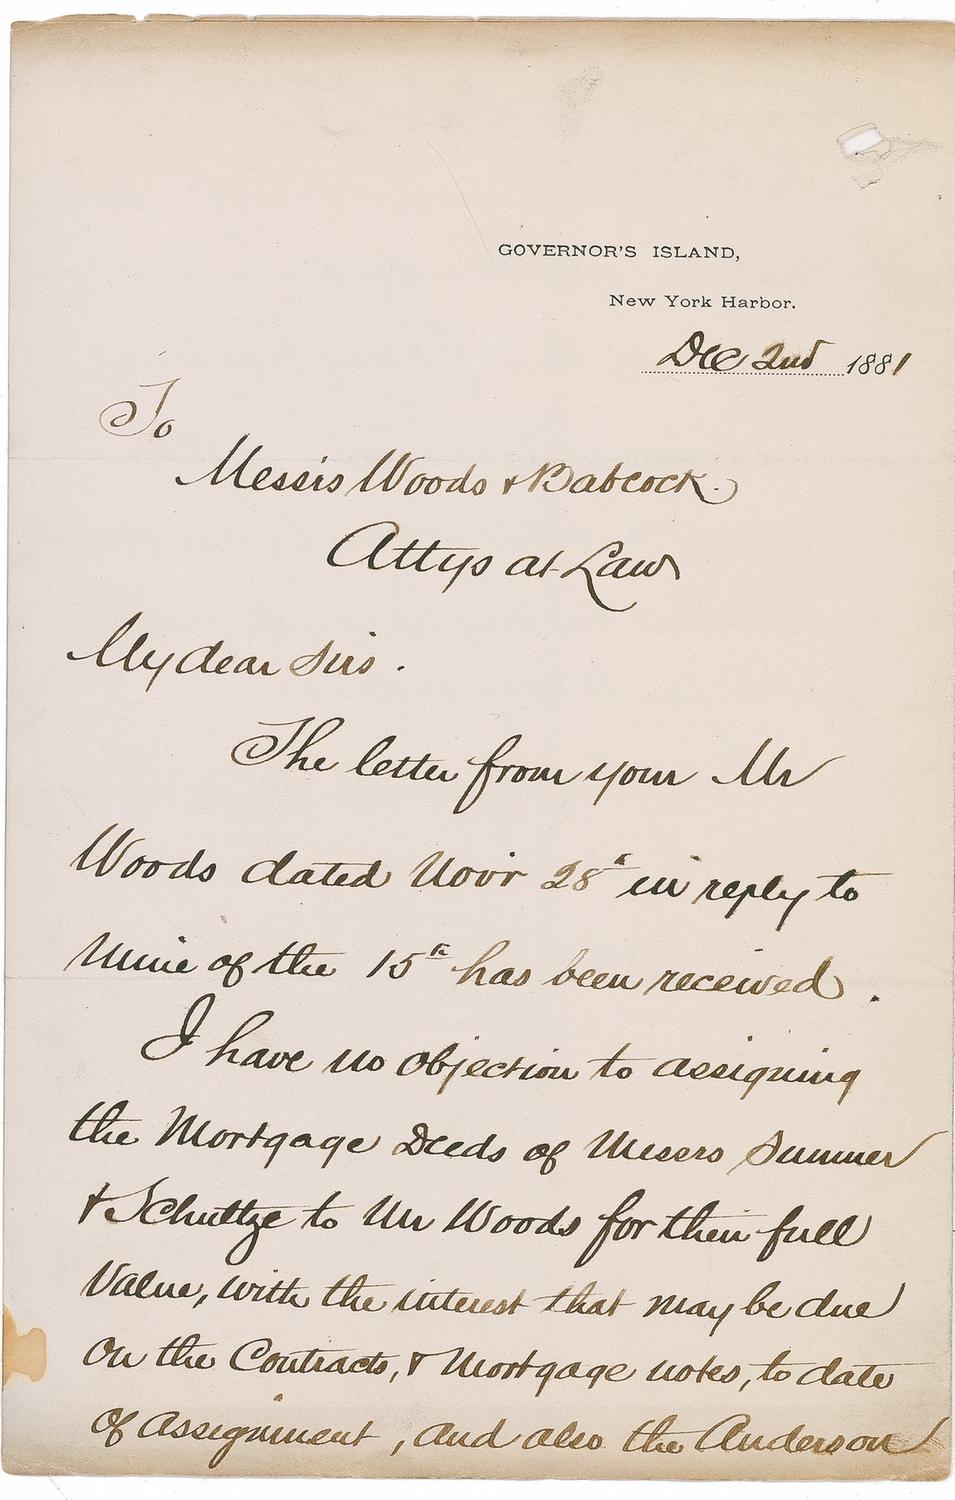 GOVERNOR'S ISLAND,
New York Harbor.
Dec 2nd 1881
To
Messrs Woods & Babcock.
Attys at Law
My dear Sirs.
The letter from your Mr
Woods dated Novr 28th in reply to
mine of the 15th has been received.
I have no objection to assigning
the Mortgage Deeds of Messrs Sumner
& Schultze to Mr Woods for their full
Value, with the interest that may be due
on the Contracts, & Mortgage notes, to date
of assignment, and also the Anderson